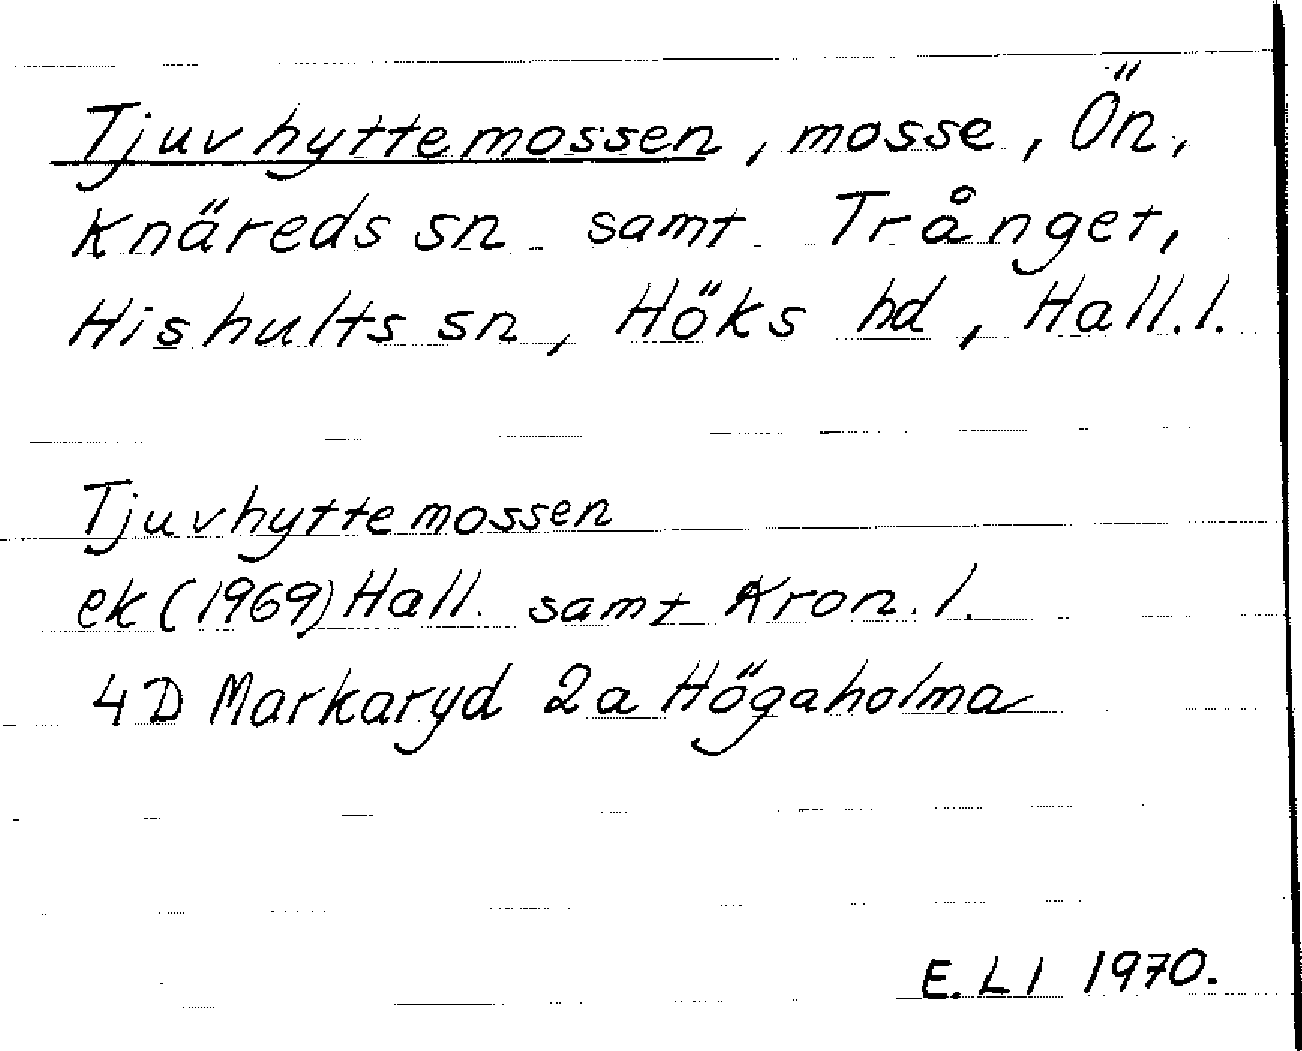 Tjuvhyttemossen, mosse, Ön,
Knäreds sn samt Trånget,
Hishults sn, Höks hd, Hall.l.
Tjuvhyttemossen
ek (1969) Hall. samt Kron.l.
4D Markaryd 2a Högaholma
E.Ll 1970.